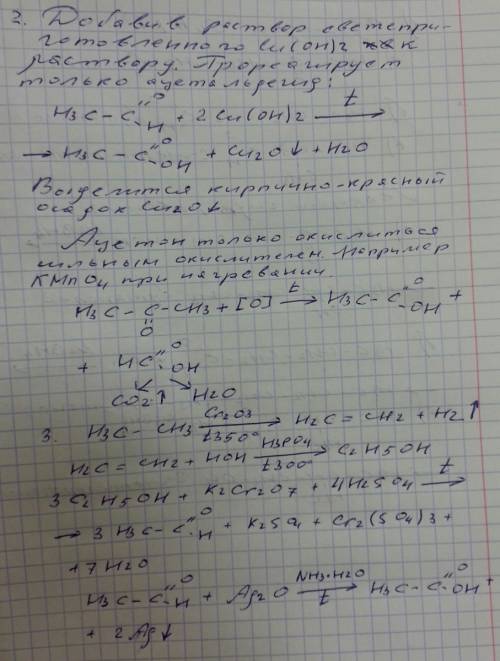 2. Добавив раствор свежепри-
готовленного Cu(OH)2 к
раствору. Прореагирует
только ацетальдегид:
H3C – C =O –H + 2 Cu(OH)2 –t→
→ H3C – C =O –OH + Cu2O↓ + H2O
Выделится кирпично-красный
осадок Cu2O↓
Ацетон только окислиться
сильным окислителем. Например
KMnO4 при нагревании.
H3C – C(=O) – CH3 + [O] –t→ H3C – C =O –OH +
+ HC =O –OH
CO2↑ H2O
3. H3C – CH3 –Cr2O3, t350°→ H2C = CH2 + H2↑
H2C = CH2 + HOH –H3PO4, t300°→ C2H5OH
3 C2H5OH + K2Cr2O7 + 4H2SO4 –t→
→ 3 H3C – C =O –H + K2SO4 + Cr2(SO4)3 +
+ 7 H2O
H3C – C =O –H + Ag2O –NH3·H2O, t→ H3C – C =O –OH +
+ 2 Ag↓